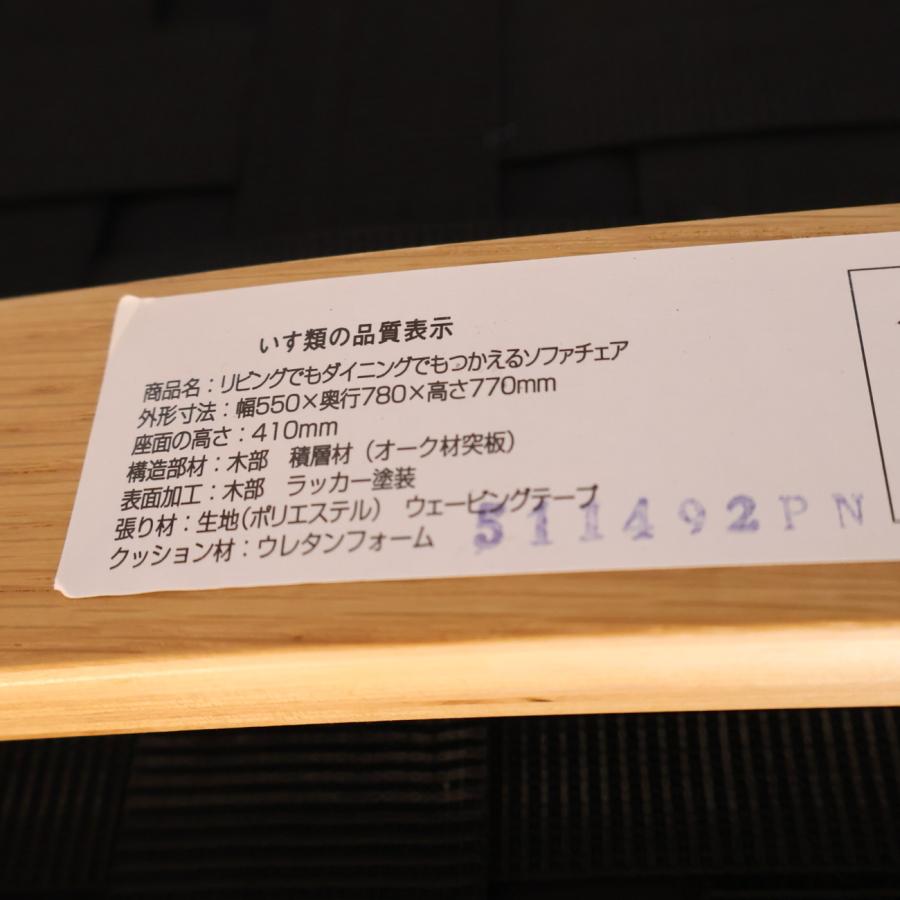 いす類の品質表示
商品名：リビングでもダイニングでもつかえるソファチェア
外形寸法：幅550×奥行780×高さ770mm
座面の高さ：410mm
構造部材：木部　積層材（オーク材突板）
表面加工：木部　ラッカー塗装
張り材：生地（ポリエステル）　ウェービングテープ
クッション材：ウレタンフォーム
511492PN